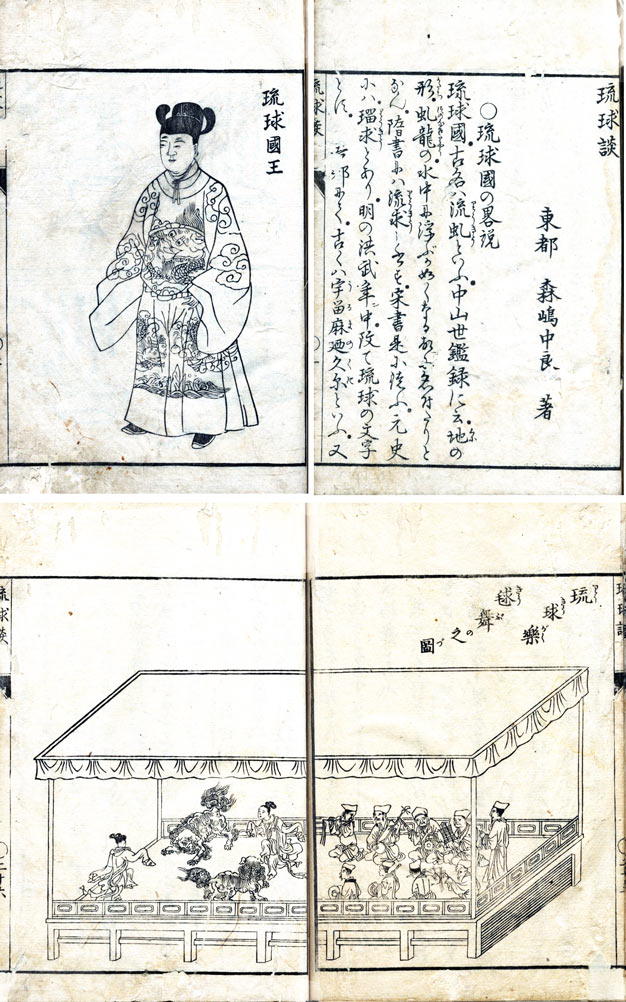 琉球談
東都 森嶋中良 著
〇琉球國の畧説
琉球國古名ハ流虬といふ中山世鑑録に云地の
形虬龍の水中に浮ぶが如くなる故に名付たりと
なん隋書にハ流求と宋書是に従ふ元史
にハ瑠求とあり明の洪武年中改て琉球の文字
とす吾邦にて古くハ宇留麻廼久尓といふ又
琉球談
琉球國王
琉球樂
毬舞之圖
琉球談
琉球談